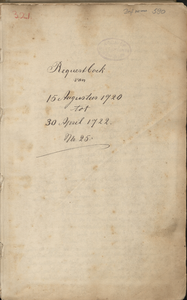 Request Boek
van
15 Augustus 1720
tot
30 April 1722.
No. 25.